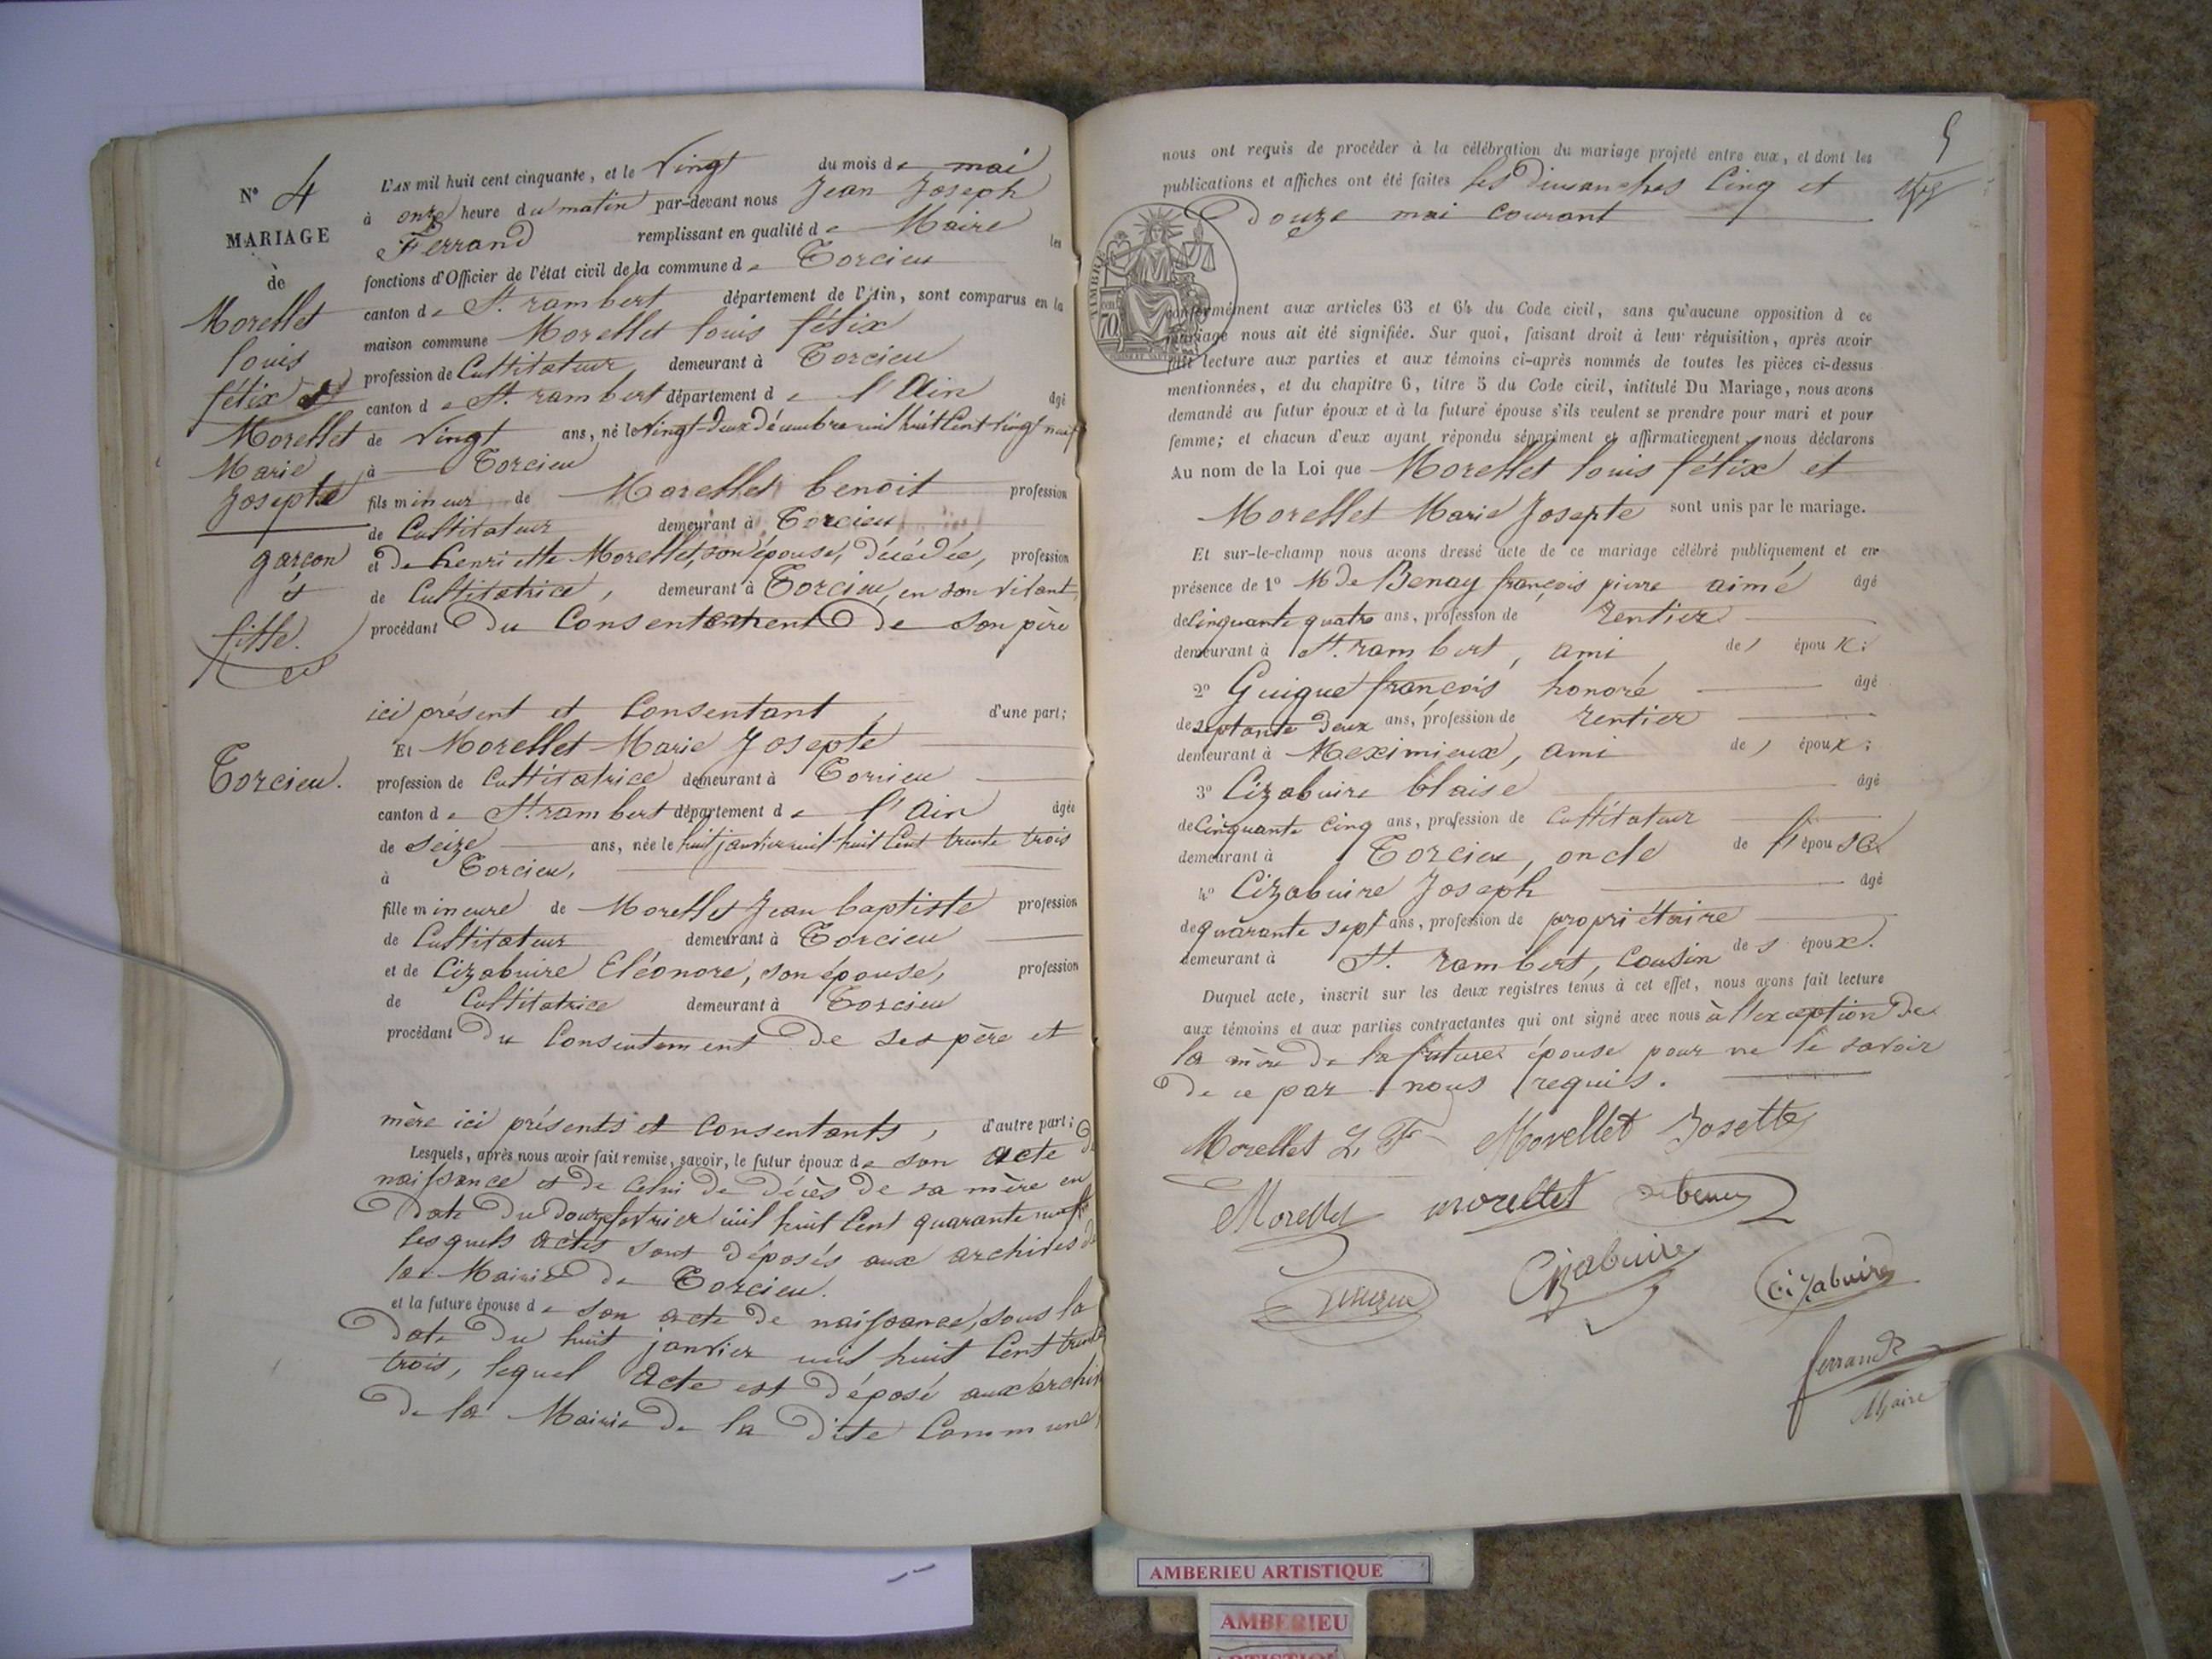 N° 4
MARIAGE
de
Morellet
louis
félix et
Morellet
Marie
Josepte
garçon
et
fille.
Torcieu.
L'AN mil huit cent cinquante, et le Vingt du mois de mai
à onze heure du matin par-devant nous Jean Joseph
Ferrand remplissant en qualité de Maire les
fonctions d'Officier de l'état civil de la commune de Torcieu
canton de St. rambert département de l'Ain, sont comparus en la
maison commune Morellet louis félix
profession de Cultivateur demeurant à Torcieu
canton de St. rambert département de l'Ain âgé
de Vingt ans, né le Vingt-deux décembre mil huit Cent vingt neuf
à Torcieu
fils mineur de Morellet benoit profession
de Cultivateur demeurant à Torcieu
et de henriette Morellet, son épouse, décédée, profession
de Cultivatrice, demeurant à Torcieu, en son vivant,
procédant Du Consentement De son père
ici présent et Consentant, d'une part;
Et Morellet Marie Josepte
profession de Cultivatrice demeurant à Torcieu
canton de St. rambert département de l'Ain âgée
de seize ans, née le huit janvier mil huit Cent trente trois
à Torcieu,
fille mineure de Morellet Jean baptiste profession
de Cultivateur demeurant à Torcieu
et de Cizabuire Eléonore, son épouse, profession
de Cultivatrice demeurant à Torcieu
procédant Du Consentement De ses père et
mère ici présents et Consentants, d'autre part;
Lesquels, après nous avoir fait remise, savoir, le futur époux de son acte de
naissance et de Celui De décès de sa mère en
Date Du Douze fevrier mil huit Cent quarante neuf
lesquels actes sont Déposés aux archives de
la Mairie De Torcieu.
et la future épouse de son acte de naissance, sous la
Date Du huit janvier mil huit Cent trente
trois, lequel Acte est Déposé aux archiv
De la Mairie De la Dite Commune,
5
nous ont requis de procéder à la célébration du mariage projeté entre eux, et dont les
publications et affiches ont été faites les Dimanches Cinq et
Douze mai courant
TIMBRE
70
conformément aux articles 63 et 64 du Code civil, sans qu'aucune opposition à ce
mariage nous ait été signifiée. Sur quoi, faisant droit à leur réquisition, après avoir
fait lecture aux parties et aux témoins ci-après nommés de toutes les pièces ci-dessus
mentionnées, et du chapitre 6, titre 5 du Code civil, intitulé Du Mariage, nous avons
demandé au futur époux et à la future épouse s'ils veulent se prendre pour mari et pour
femme; et chacun d'eux ayant répondu séparément et affirmativement, nous déclarons
Au nom de la Loi que Morellet louis félix et
Morellet Marie Josepte sont unis par le mariage.
Et sur-le-champ nous avons dressé acte de ce mariage célébré publiquement et en
présence de 1° Mr De Benay françois pierre aimé âgé
de Cinquante quatre ans, profession de rentier
demeurant à St. rambert, ami de l'époux;
2° Guigue françois honoré âgé
de septante Deux ans, profession de rentier
demeurant à Meximieux, ami de l'époux;
3° Cizabuire blaise âgé
de Cinquante cinq ans, profession de Cultivateur
demeurant à Torcieu, oncle de l'épouse
4° Cizabuire Joseph âgé
de quarante sept ans, profession de propriétaire
demeurant à St. rambert, Cousin des époux.
Duquel acte, inscrit sur les deux registres tenus à cet effet, nous avons fait lecture
aux témoins et aux parties contractantes qui ont signé avec nous à l'exception De
la mère De la future épouse pour ne le savoir
De ce par nous requis.
Morellet L. F. Morellet Josette
Morellet morellet debenay
Guigue Cizabuire Cizabuire
ferrand
Maire
AMBERIEU ARTISTIQUE
AMBERIEU
ARTISTIQUE